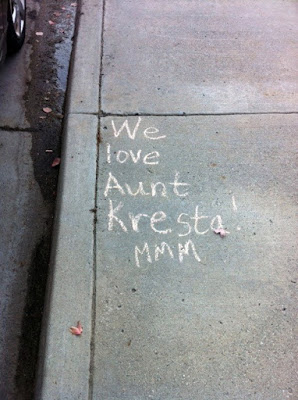 We
love
Aunt
Kresta!
MMM